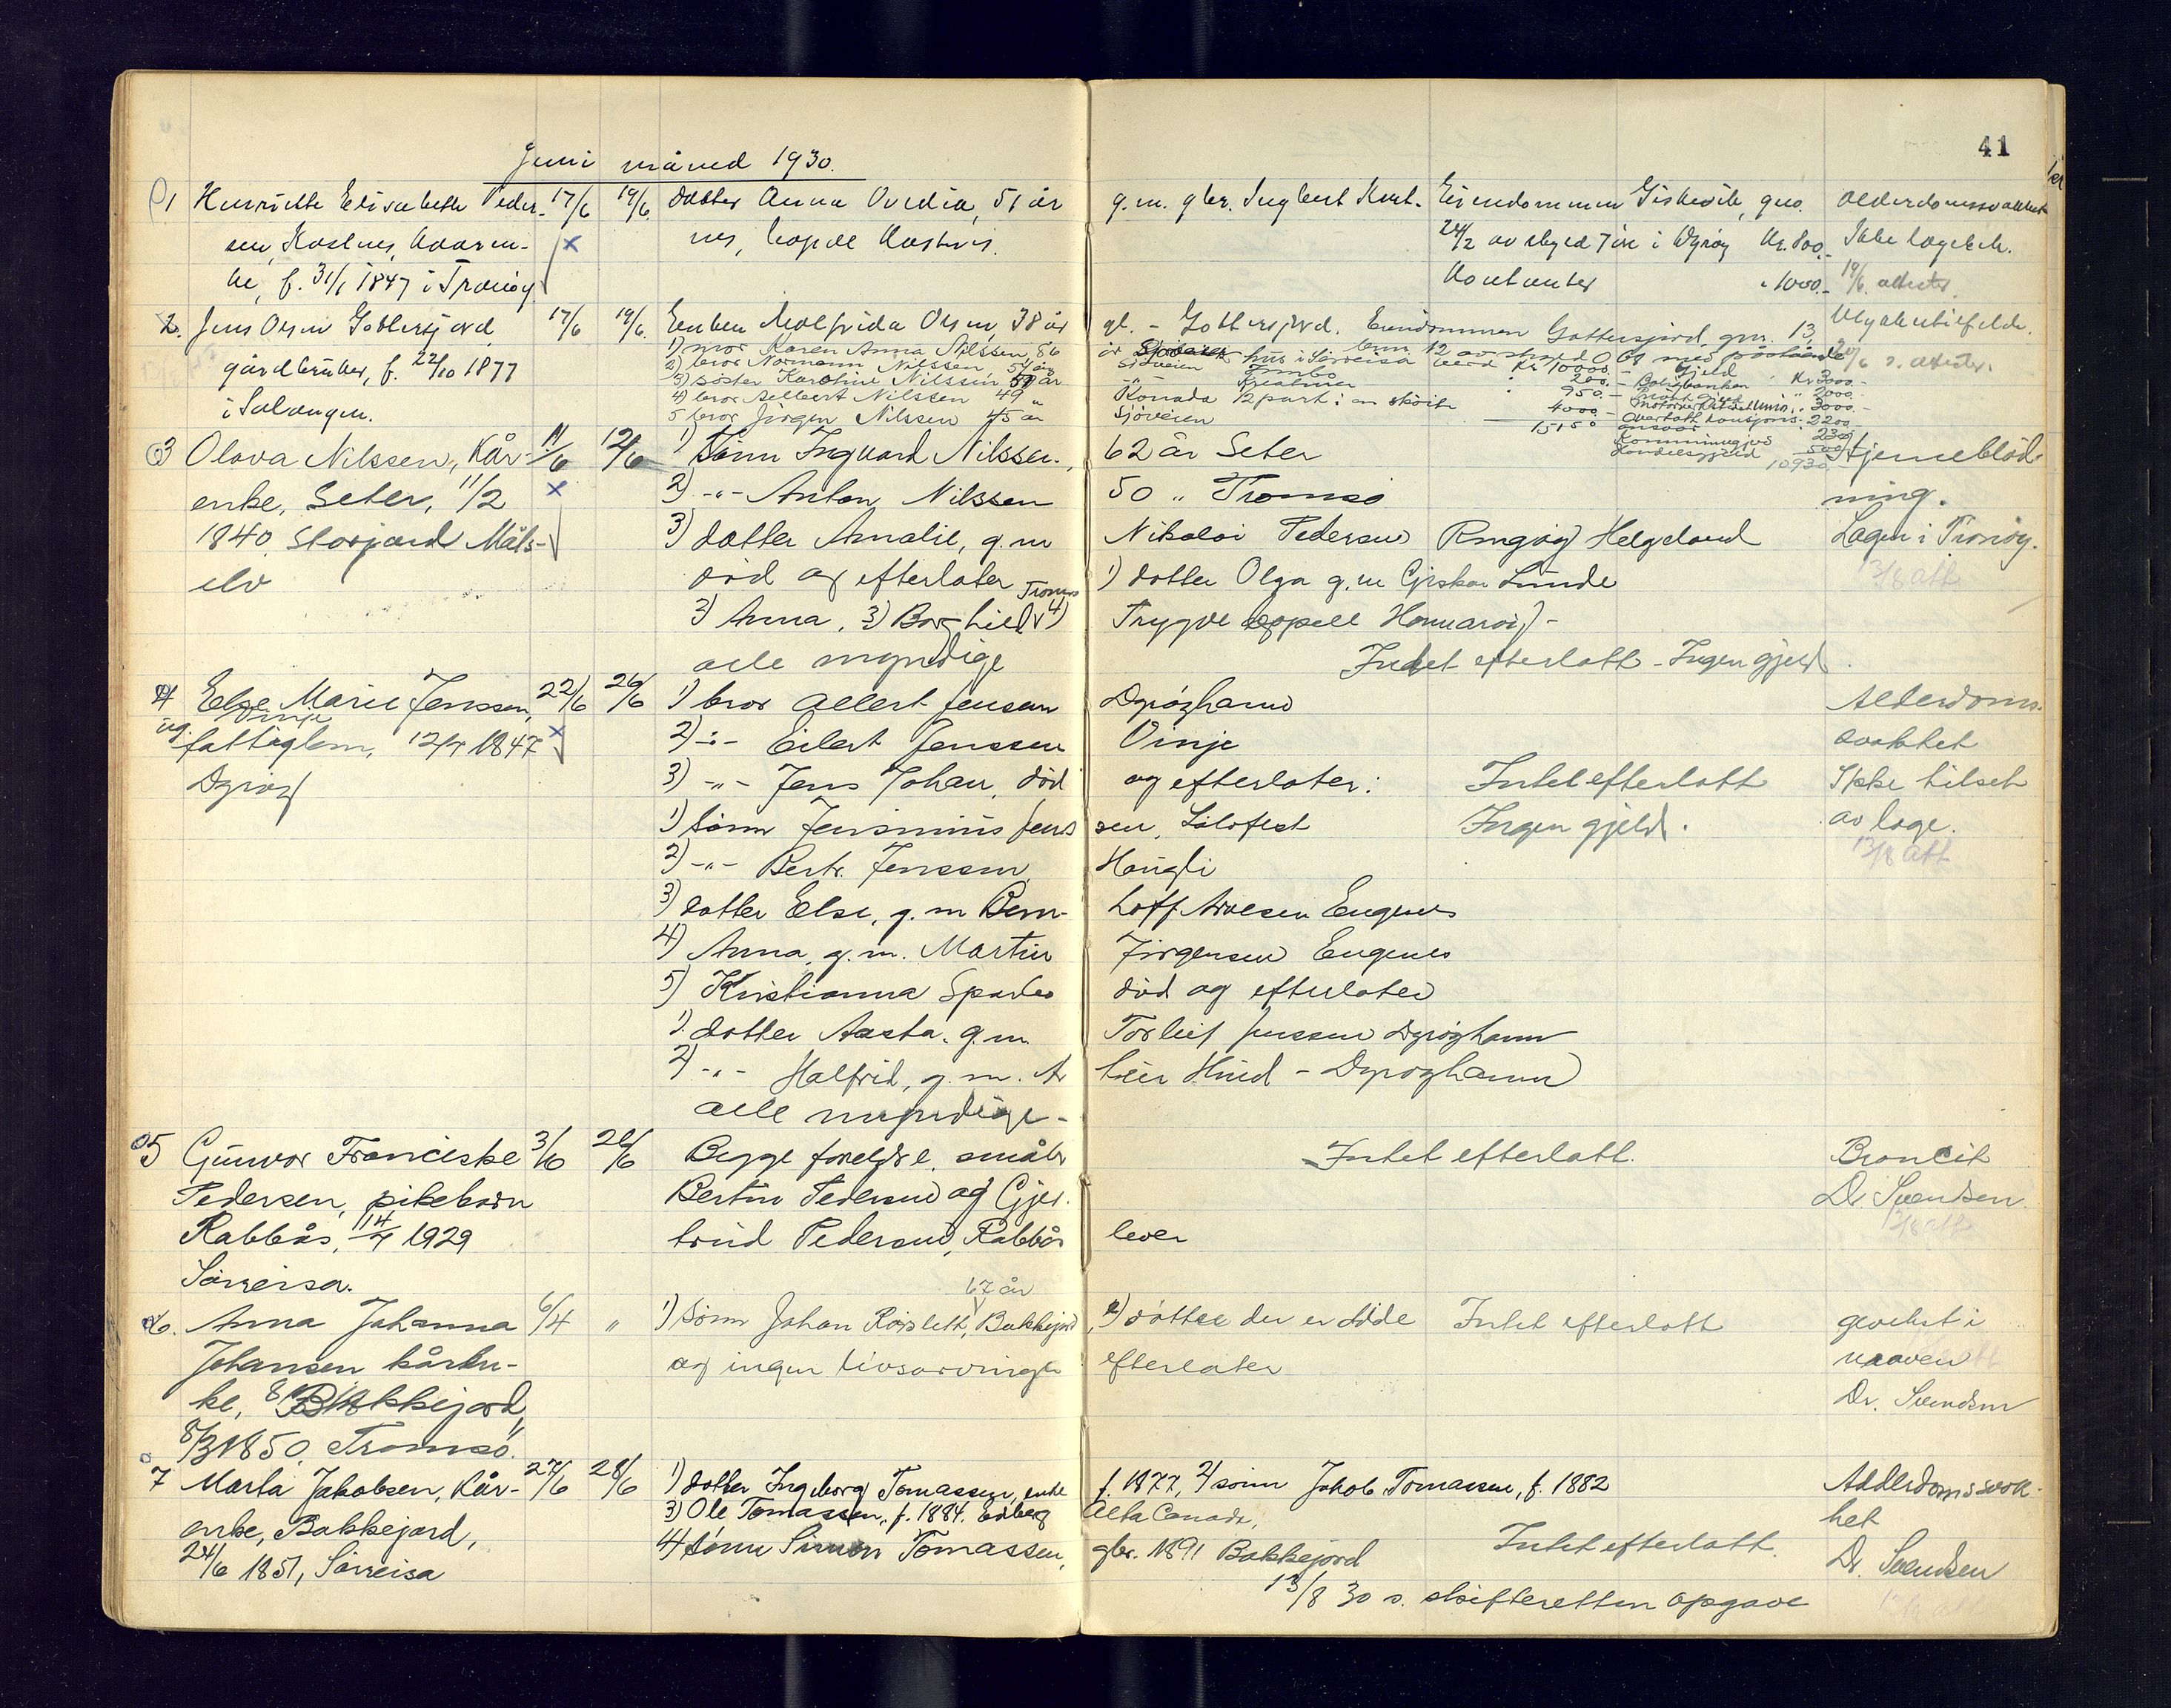 41
Juni måned 1930.
1 Henriette Elisabeth Peder- 17/6 19/6 datter Anna Ovedia, 51 år g.m. gbr. Ingbert Kast- Eiendommen Giskevik, gno. Alderdomssvakhet
sen, Kastnes, kaaren- x nes, Kastnes. 24/2 av skyld 7 øre i Dyrøy Kr. 800.- Ikke lægebeh.
ke, f. 31/1 1847 i Tranøy. Kontanter " 1000.- 19/6. attester
2. Jens Olsen Gottersjord 17/6 19/6. Enken Olsen, 38 år gl. - Gottersjord. Eiendommen Gottersjord, gnr. 13,
gårdbruker, f. 22/10 1877
i Salangen.
1) mor Karen Anna Nilssen, 86 år
2) bror Normann Nilssen, 54 år Sjøveien
3) søster Karoline Nilssen, 51 år
4) bror Albert Nilssen 49 " Kanada
5 bror Jørgen Nilssen 45 år Sjøveien
bnr. 12 av skyld
hus i Sørreisa verd Kr 10000.- Gjeld
200.- Boligbanken Kr 3000.-
950.- 2000.-
1/2 part i en skøite 4000.- 3000.-
15150 2200
230
500
10930
3 Olava Nilssen, Kår- 11/6 12/6 1) Sønn Ingvard Nilssen, 62 år Seter Hjerneblød-
enke, Seter, 11/2 x 2) -"- Anton Nilssen 50 " Tromsø ning.
1840. Storjord Måls- 3) datter Amalie, g.m Nikolai Pedersen Ringøy Helgeland Lægen i Tranøy.
elv død og efterlater 1) datter Olga g.m Lunde 13/8 att
Tromsø
3) Anna, 3) Borghild 4) Trygve
alle myndige Intet efterlatt - Ingen gjeld.
4 Else Marie Jenssen, 22/6 26/6 1) bror Albert Jensen Dyrøyhamn Alderdoms-
Vinje
ug. fattiglem, 12/7 1847 x 2) -"- Eilert Jenssen Vinje svakhet
Dyrøy 3) -"- Jens Johan, død og efterlater: Intet efterlatt Ikke tilset
1) sønn Jensenius Jens sen, Solofest Ingen gjeld. av læge.
2) -"- Bertr. Jenssen Haugli 13/8 att
3) datter Else, g.m Bern- hoff Arnesen Eugenes
4) Anna, g.m. Martin Jörgensen Eugenes
5) Kristianna død og efterlater
1) datter Aasta, g.m. Torleif Jenssen Dyrøyhamn
2) -"- Halfrid, g.m. Ar thur Hind - Dyrøyhamn
alle myndige -
5 Gunvor Franciske 3/6 26/6 Begge foreldre, småbr Intet efterlatt. Broncit
Pedersen, pikebarn Bertin Pedersen og Gjer- Dr Svendsen
Rabbås, 14/7 1929 trud Pedersen, Rabbås lever 13/8 att
Sørreisa.
67 år
6. Anna Johanna 6/4 " 1) sønn Johan Röislett, Bakkejord, 2) døttre der er døde Intet efterlatt gevekst i
Johansen kåren- og ingen livsarvinger efterlater maven
ke, Bakkejord, Dr. Svendsen
8/3 1850, Tromsø.
7 Marta Jakobsen, Kår- 27/6 28/6 1) datter Ingeborg Tomassen, enke f. 1877, 2) sønn Jakob Tomassen, f. 1882 Alderdomssvak-
enke, Bakkejord, 3) Ole Tomassen, f. 1884. Edberg Alta Canada, het
24/6 1851, Sørreisa 4) sønn Simon Tomassen, gbr. 1891 Bakkejord Intet efterlatt. Dr. Svendsen
13/8 30 s. skifteretten opgave